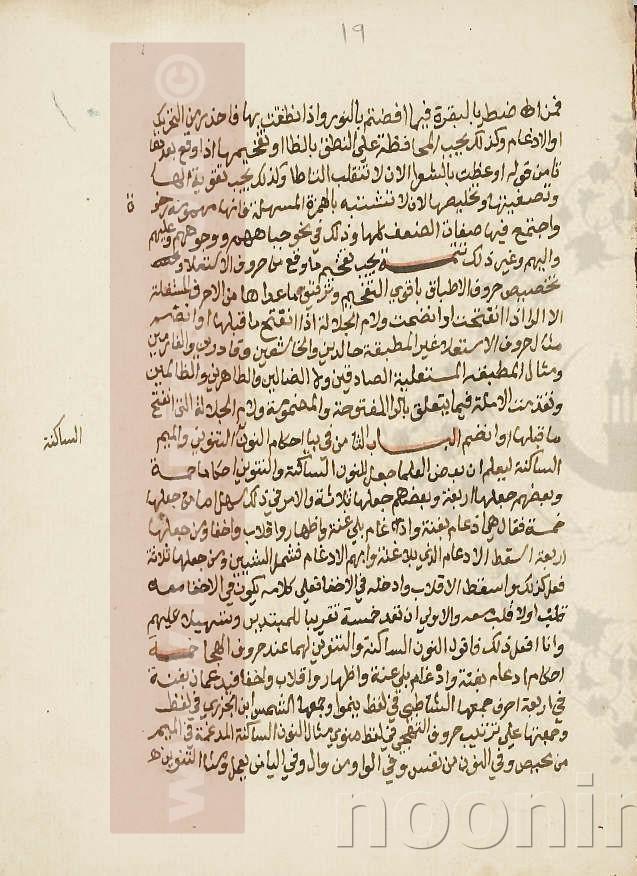 ١٩
فمن اضطر بالبقرة فيها افضتم بالنور واذا نطقت بها فاحذر من التحريك
او الادغام وكذلك يجب المحافظة على النطق بالظا وتفخيمها اذا وقع بعدها
تا من قوله اوعظت بالشعرا لان لا تنقلب الظا طا وكذلك يجب تقوية الها
وتصفيتها وتخليصها لان لا تشتبه بالهمزة المسهلة فانها مهموسة رخوة
واجتمع فيها صفات الضعف كلها وذلك في نحو جباههم ووجوههم وعليهم
واليهم وغير ذلك تتمة يجب تفخيم ما وقع من حروف الاستعلا
تخصيص حروف الاطباق باقوى التفخيم وترقيق ما عداها من الاحرف المستفلة
الا الرا اذا انفتحت او انضمت ولام الجلالة اذا انفتح ما قبلها او انضم
مثال حروف الاستعلا غير المطبقة خالدين والخاشعين وقادرين والغارمين
ومثال المطبقة المستعلية الصادقين ولا الضالين والطاهرين والظالمين
وتقدمت الامثلة فيما يتعلق بالرا المفتوحة والمضمومة ولام الجلالة التي انفتح
ما قبلها او انضم الباب الثامن في بيان احكام النون والتنوين والميم
الساكنة
الساكنة ليعلم ان بعض العلما جعل للنون الساكنة والتنوين احكاما خمسة
وبعضهم جعلها اربعة وبعضهم جعلها ثلاثة والامر في ذلك سهل اما من جعلها
خمسة فقال هي ادغام بغنة وادغام بلا غنة واظهار واقلاب واخفا ومن جعلها
اربعة اسقط الادغام الذي بلا غنة وابهم الادغام فشمل الشيئين ومن جعلها ثلاثة
فعل كذلك واسقط الاقلاب وادخله في الاخفا فعلى كلامه يكون في الاخفا معه
قلب اولا قلب معه والاولى ان تعد خمسة تقريبا للمبتدين وتسهيلا عليهم
وانا افعل ذلك فاقول النون الساكنة والتنوين لهما عند حروف الهجا خمسة
احكام ادغام بغنة وادغام بلا غنة واظهار واقلاب واخفا فيدغمان بغنة
في اربعة احرف جمعها الشاطبي في لفظ ينمو وجمعها الشمس ابن الجزري في لفظ
وجمعتها على ترتيب حروف التهجي في لفظ منوي مثال النون الساكنة المدغمة في الميم
من محيص وفي النون من نفس وفي الواو من وال وفي اليا من يعمل ومثال التنوين